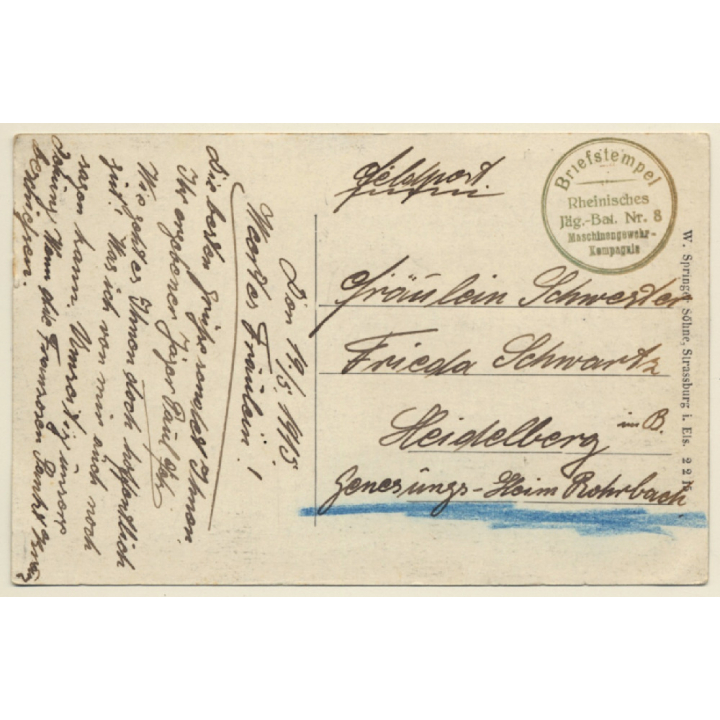 Feldpost.
Briefstempel
Rheinisches
Jäg.-Bat. Nr. 8
Maschinengewehr-
Kompagnie
Fräulein Schwester
Frieda Schwartz
Heidelberg im B.
Genesungs-Heim Rohrbach
W. Springer Söhne, Strassburg i. Els.
Den 19/5. 1915
Wertes Fräulein!
Die besten Grüsse sendet Ihnen
Ihr ergebener Jäger Paul
Wie geht es Ihnen doch hoffendlich
gut. Was ich von mir auch noch
sagen kann. unsere
Wenn die Franzosen